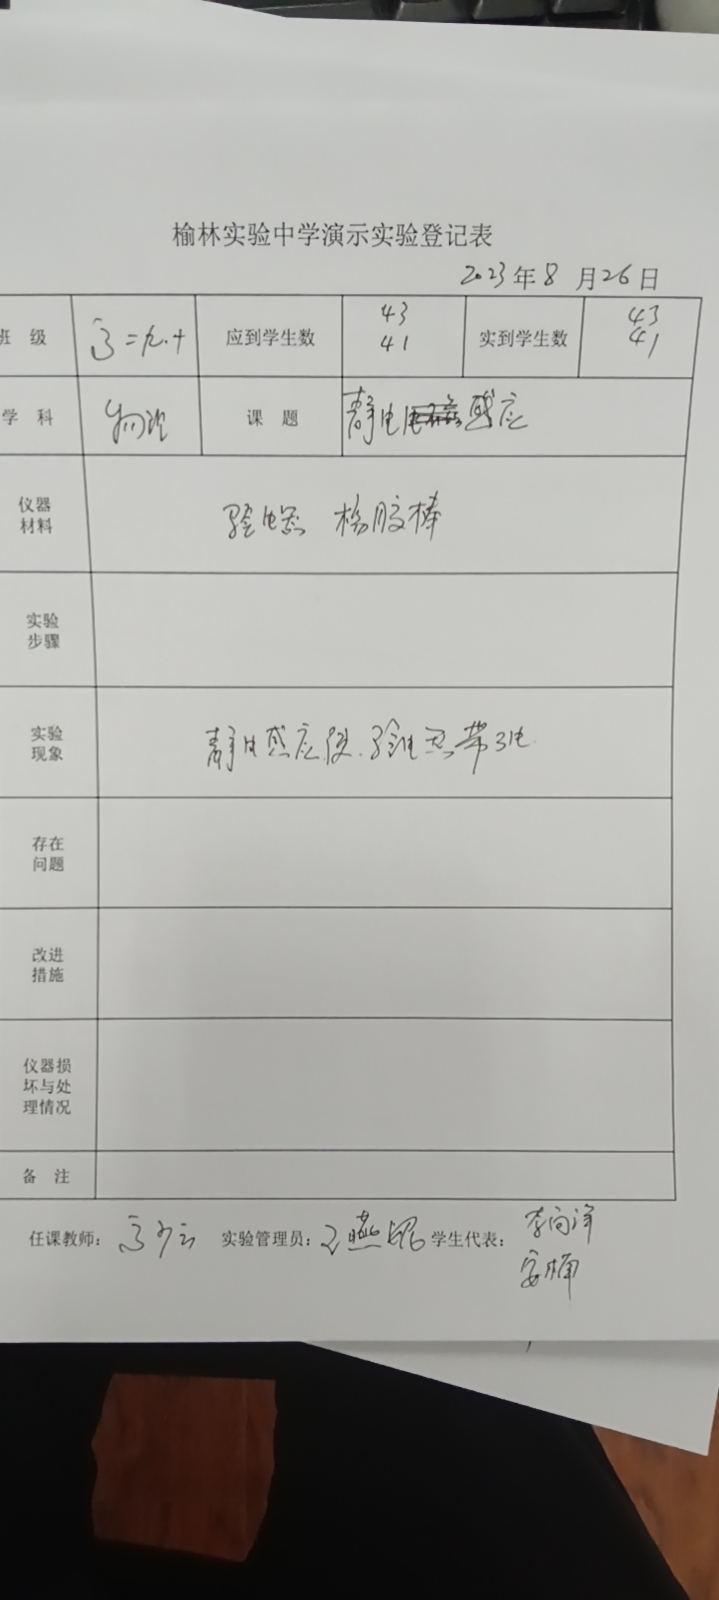 榆林实验中学演示实验登记表
2023年8月26日
班 级 高二九.十 应到学生数 43 41 实到学生数 43 41
学 科 物理 课 题 静电感应
仪器
材料
验电器 橡胶棒
实验
步骤
实验
现象
静电感应使验电器带了电
存在
问题
改进
措施
仪器损
坏与处
理情况
备 注
任课教师: 高少云 实验管理员: 学生代表: 李向洋
安楠